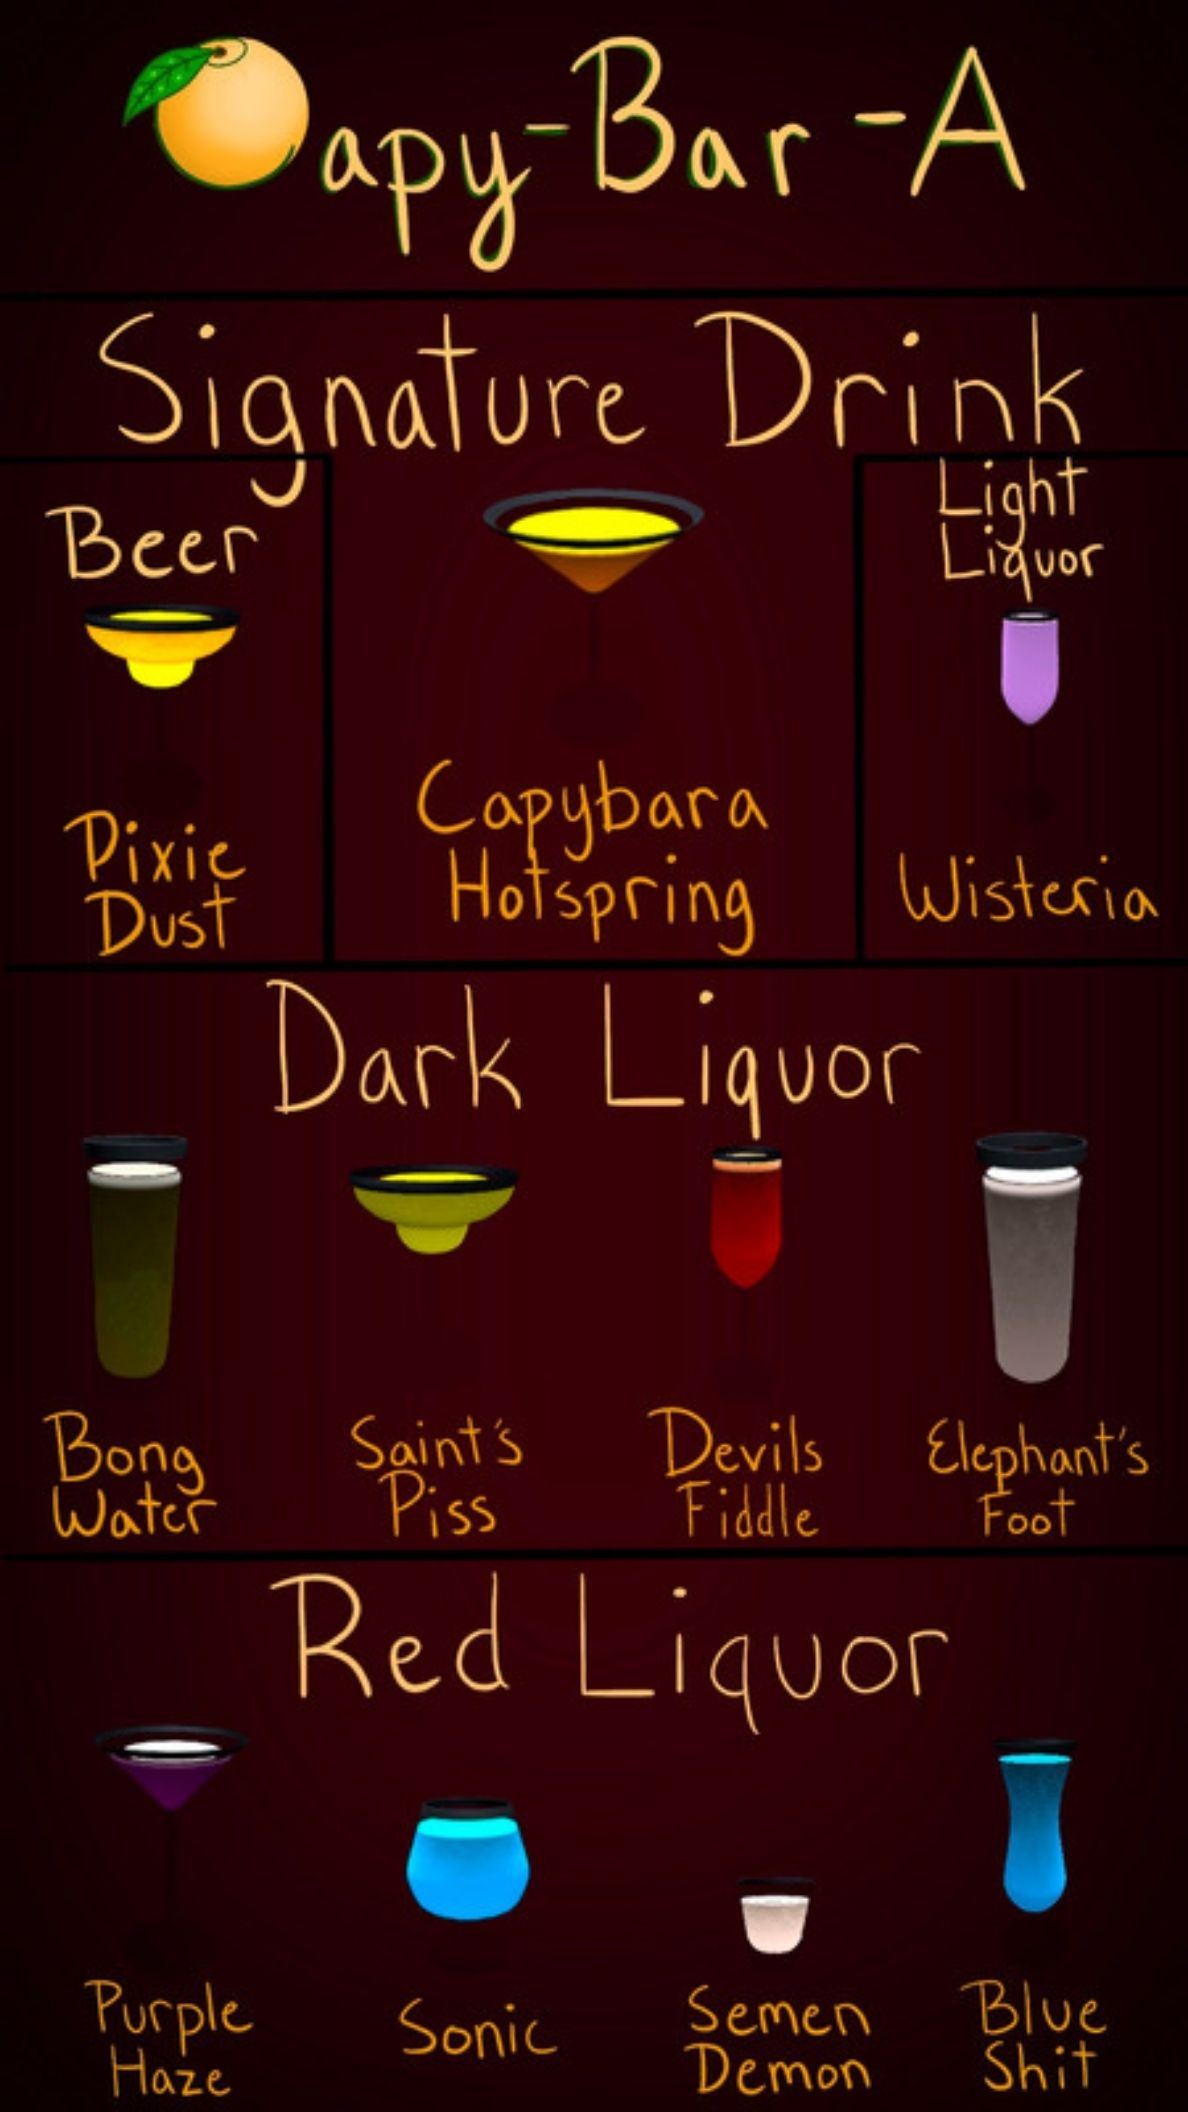 apy-Bar-A
Signature Drink
Beer
Light
Liquor
Pixie
Dust
Capybara
Hotspring
Wisteria
Dark Liquor
Bong
Water
Saint's
Piss
Devils
Fiddle
Elephant's
Foot
Red Liquor
Purple
Haze
Sonic
Semen
Demon
Blue
Shit